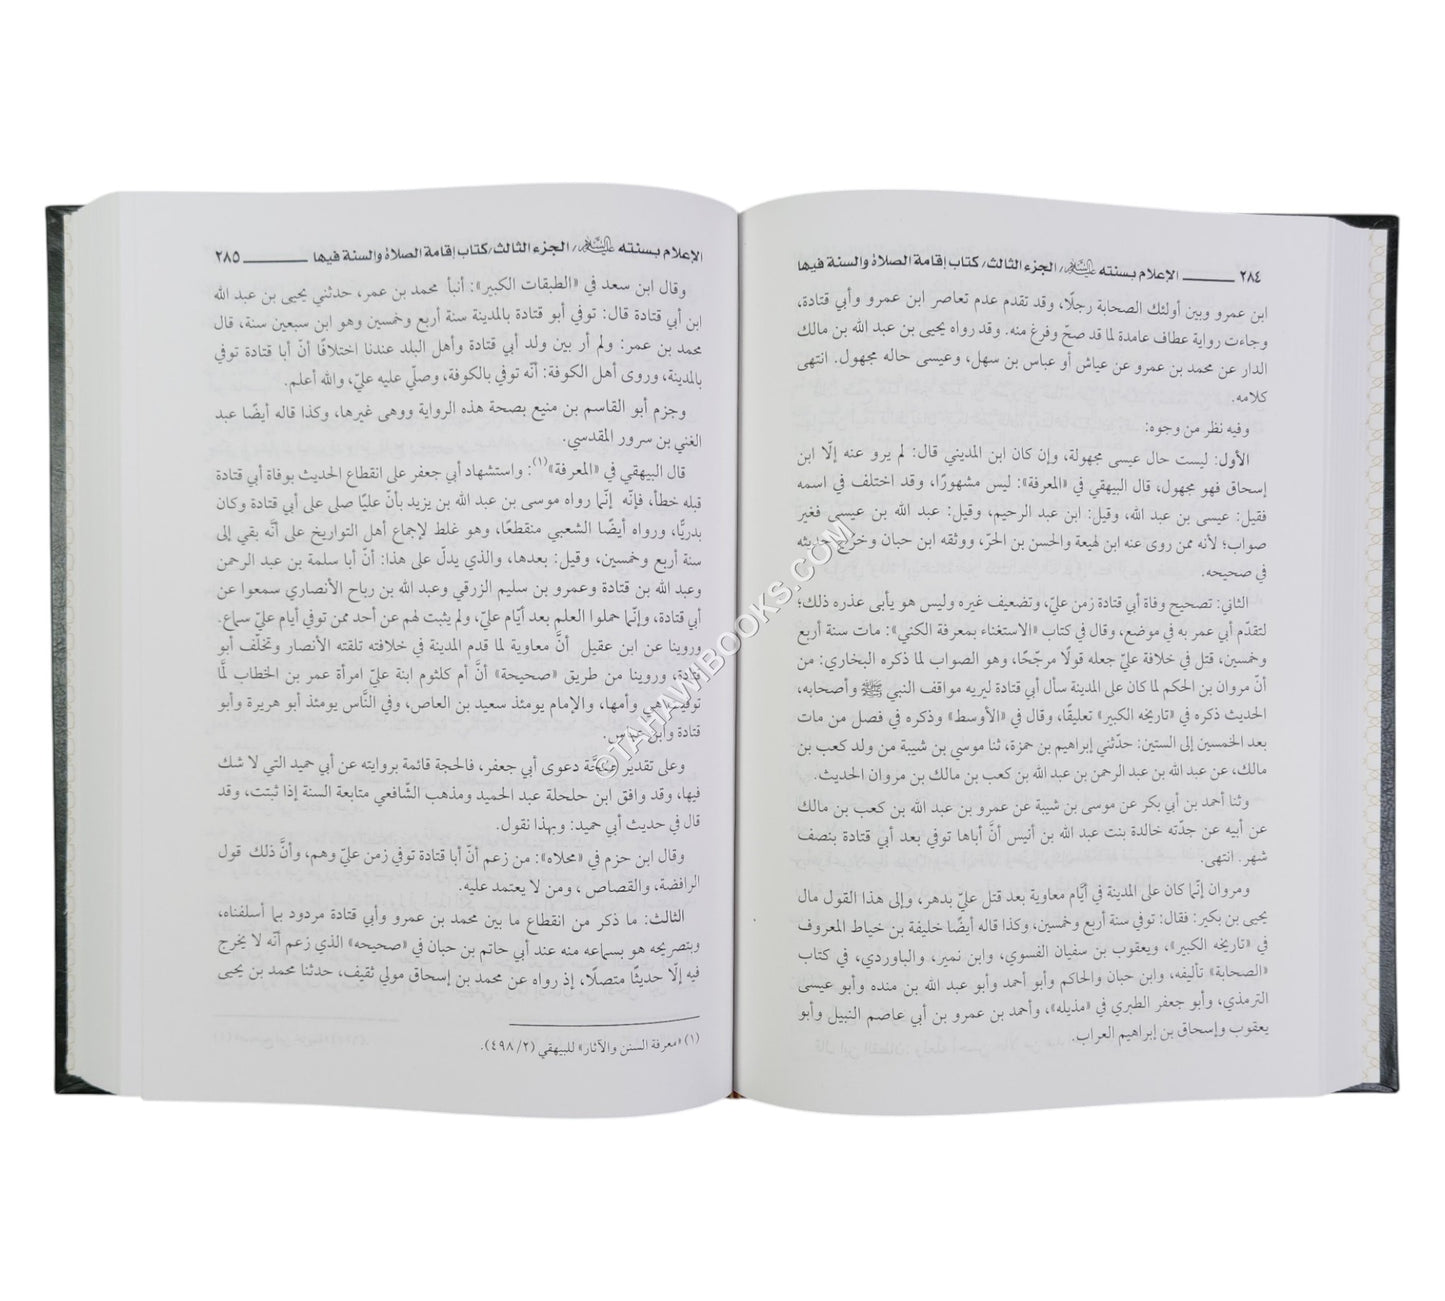 ٢٨٤ ـــــــ الإعلام بسنته عليه السلام / الجزء الثالث/ كتاب إقامة الصلاة والسنة فيها
ابن عمرو وبين أولئك الصحابة رجلًا، وقد تقدم عدم تعاصر ابن عمرو وأبي قتادة،
وجاءت رواية عطاف عامدة لما قد صحّ وفرغ منه. وقد رواه يحيى بن عبد الله بن مالك
الدار عن محمد بن عمرو عن عياش أو عباس بن سهل، وعيسى حاله مجهول. انتهى
كلامه.
وفيه نظر من وجوه:
الأول: ليست حال عيسى مجهولة، وإن كان ابن المديني قال: لم يرو عنه إلّا ابن
إسحاق فهو مجهول، قال البيهقي في «المعرفة»: ليس مشهورًا، وقد اختلف في اسمه
فقيل: عيسى بن عبد الله، وقيل: ابن عبد الرحيم، وقيل: عبد الله بن عيسى فغير
صواب؛ لأنه ممن روى عنه ابن لهيعة والحسن بن الحرّ، ووثقه ابن حبان وخرّج حديثه
في صحيحه.
الثاني: تصحيح وفاة أبي قتادة زمن عليّ، وتضعيف غيره وليس هو يأبى عذره ذلك؛
لتقدّم أبي عمر به في موضع، وقال في كتاب «الاستغناء بمعرفة الكنى»: مات سنة أربع
وخمسين، قتل في خلافة عليّ جعله قولًا مرجّحًا، وهو الصواب لما ذكره البخاري: من
أنّ مروان بن الحكم لما كان على المدينة سأل أبي قتادة ليريه مواقف النبي ﷺ وأصحابه،
الحديث ذكره في «تاريخه الكبير» تعليقًا، وقال في «الأوسط» وذكره في فصل من مات
بعد الخمسين إلى الستين: حدّثني إبراهيم بن حمزة، ثنا موسى بن شيبة من ولد كعب بن
مالك، عن عبد الله بن عبد الرحمن بن عبد الله بن كعب بن مالك بن مروان الحديث.
وثنا أحمد بن أبي بكر عن موسى بن شيبة عن عمرو بن عبد الله بن كعب بن مالك
عن أبيه عن جدّته خالدة بنت عبد الله بن أنيس أنَّ أباها توفي بعد أبي قتادة بنصف
شهر. انتهى.
ومروان إنّما كان على المدينة في أيّام معاوية بعد قتل عليّ بدهر، وإلى هذا القول مال
يحيى بن بكير: فقال: توفي سنة أربع وخمسين، وكذا قاله أيضًا خليفة بن خياط المعروف
في «تاريخه الكبير»، ويعقوب بن سفيان الفسوي، وابن نمير، والباوردي، في كتاب
«الصحابة» تأليفه، وابن حبان والحاكم وأبو أحمد وأبو عبد الله بن منده وأبو عيسى
الترمذي، وأبو جعفر الطبري في «مذيله»، وأحمد بن عمرو بن أبي عاصم النبيل وأبو
يعقوب وإسحاق بن إبراهيم العراب.
الإعلام بسنته عليه السلام / الجزء الثالث/ كتاب إقامة الصلاة والسنة فيها ـــــــ ٢٨٥
وقال ابن سعد في «الطبقات الكبير»: أنبأ محمد بن عمر، حدثني يحيى بن عبد الله
ابن أبي قتادة قال: توفي أبو قتادة بالمدينة سنة أربع وخمسين وهو ابن سبعين سنة، قال
محمد بن عمر: ولم أر بين ولد أبي قتادة وأهل البلد عندنا اختلافًا أنّ أبا قتادة توفي
بالمدينة، وروى أهل الكوفة: أنّه توفي بالكوفة، وصلّي عليه عليّ، والله أعلم.
وجزم أبو القاسم بن منيع بصحة هذه الرواية ووهى غيرها، وكذا قاله أيضًا عبد
الغني بن سرور المقدسي.
قال البيهقي في «المعرفة»(١): واستشهاد أبي جعفر على انقطاع الحديث بوفاة أبي قتادة
قبله خطأ، فإنّه إنّما رواه موسى بن عبد الله بن يزيد بأنّ عليًا صلى على أبي قتادة وكان
بدريًّا، ورواه أيضًا الشعبي منقطعًا، وهو غلط لإجماع أهل التواريخ على أنَّه بقي إلى
سنة أربع وخمسين، وقيل: بعدها، والذي يدلّ على هذا: أنّ أبا سلمة بن عبد الرحمن
وعبد الله بن قتادة وعمرو بن سليم الزرقي وعبد الله بن رباح الأنصاري سمعوا عن
أبي قتادة، وإنّما حملوا العلم بعد أيّام عليّ، ولم يثبت لهم عن أحد ممن توفي أيام عليّ سماع.
وروينا عن ابن عقيل أنَّ معاوية لما قدم المدينة في خلافته تلقته الأنصار وتخلّف أبو
قتادة، وروينا من طريق «صحيحة» أنَّ أم كلثوم ابنة عليّ امرأة عمر بن الخطاب لمَّا
توفيت هي وأمها، والإمام يومئذ سعيد بن العاص، وفي النَّاس يومئذ أبو هريرة وأبو
قتادة وابن عباس.
وعلى تقدير صحَّة دعوى أبي جعفر، فالحجة قائمة بروايته عن أبي حميد التي لا شك
فيها، وقد وافق ابن حلحلة عبد الحميد ومذهب الشّافعي متابعة السنة إذا ثبتت، وقد
قال في حديث أبي حميد: وبهذا نقول.
وقال ابن حزم في «محلاه»: من زعم أنّ أبا قتادة توفي زمن عليّ وهم، وأنَّ ذلك قول
الرافضة، والقصاص، ومن لا يعتمد عليه.
الثالث: ما ذكر من انقطاع ما بين محمد بن عمرو وأبي قتادة مردود بما أسلفناه،
وبتصريحه هو بسماعه منه عند أبي حاتم بن حبان في «صحيحه» الذي زعم أنّه لا يخرج
فيه إلّا حديثًا متصلًا، إذ رواه عن محمد بن إسحاق مولي ثقيف، حدثنا محمد بن يحيى
(١) «معرفة السنن والآثار» للبيهقي (٢/ ٤٩٨).
©TAHAWIBOOKS.COM